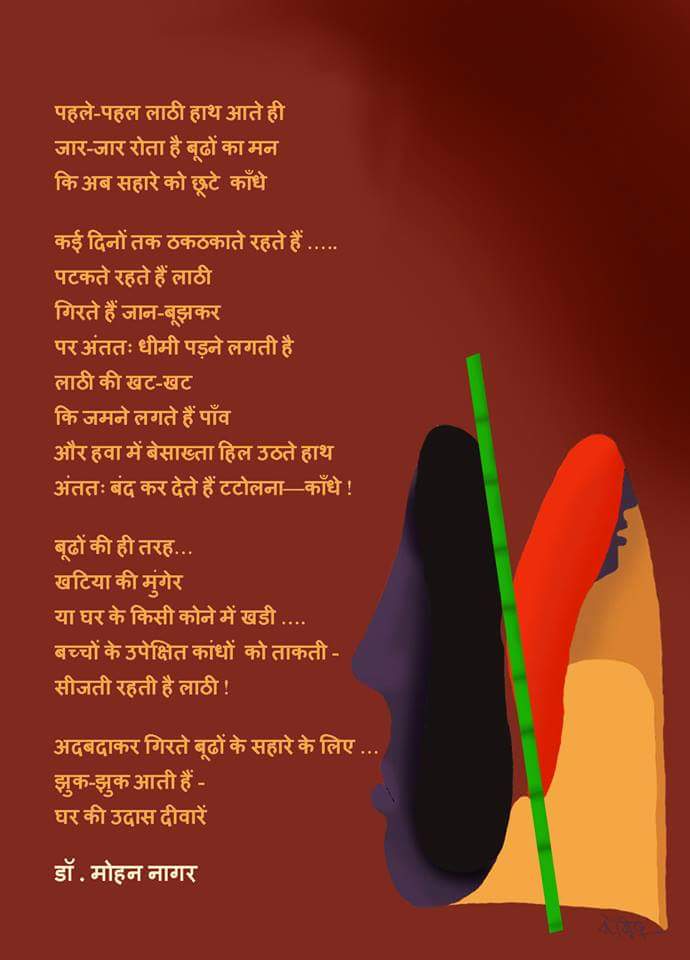 पहले-पहल लाठी हाथ आते ही
जार-जार रोता है बूढों का मन
कि अब सहारे को छूटे काँधे
कई दिनों तक ठकठकाते रहते हैं .....
पटकते रहते हैं लाठी
गिरते हैं जान-बूझकर
पर अंततः धीमी पड़ने लगती है
लाठी की खट-खट
कि जमने लगते हैं पाँव
और हवा में बेसाख्ता हिल उठते हाथ
अंततः बंद कर देते हैं टटोलना—काँधे !
बूढों की ही तरह...
खटिया की मुंगेर
या घर के किसी कोने में खडी ....
बच्चों के उपेक्षित कांधों को ताकती -
सीजती रहती है लाठी !
अदबदाकर गिरते बूढों के सहारे के लिए ...
झुक-झुक आती हैं -
घर की उदास दीवारें
डॉ . मोहन नागर